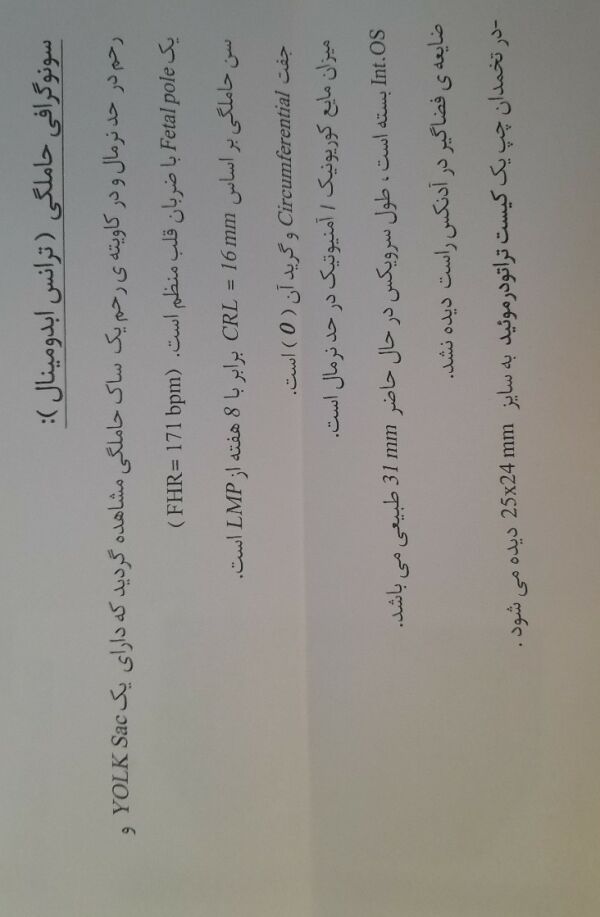 سونوگرافی حاملگی ( ترانس ابدومینال ):
رحم در حد نرمال و در کاویته ی رحم یک ساک حاملگی مشاهده گردید که دارای یک YOLK Sac و
یک Fetal pole با ضربان قلب منظم است. (FHR= 171 bpm )
سن حاملگی بر اساس CRL = 16 mm برابر با 8 هفته از LMP است.
جفت Circumferential و گرید آن ( 0 ) است.
میزان مایع کوریونیک / آمنیوتیک در حد نرمال است.
Int.OS بسته است ، طول سرویکس در حال حاضر 31 mm طبیعی می باشد.
ضایعه ی فضاگیر در آدنکس راست دیده نشد.
-در تخمدان چپ یک کیست تراتودرموئید به سایز 25x24 mm دیده می شود .